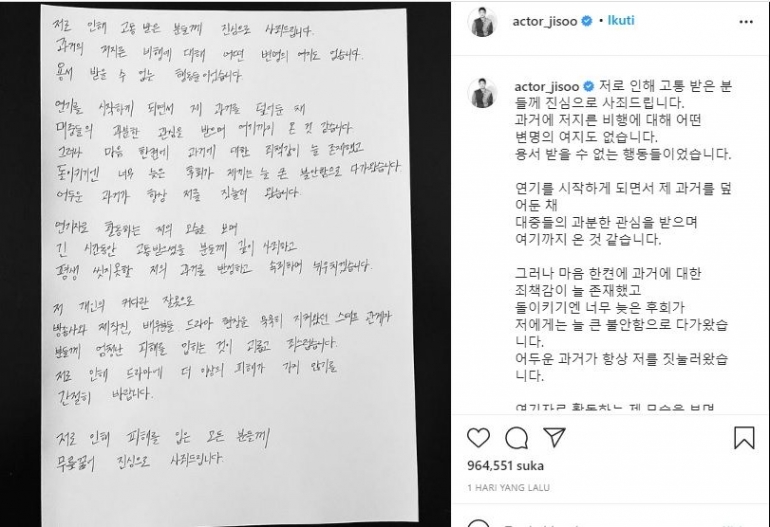 저로 인해 고통 받은 분들께 진심으로 사죄드립니다.
과거의 저지른 비행에 대해 어떤 변명의 여지도 없습니다.
용서 받을 수 없는 행동들이었습니다.
연기를 시작하게 되면서 제 과거를 덮어둔 채
대중들의 과분한 관심을 받으며 여기까지 온 것 같습니다.
그러나 마음 한켠에 과거에 대한 죄책감이 늘 존재했고
돌이키기엔 너무 늦은 후회가 저에게는 늘 큰 불안함으로 다가왔습니다.
어두운 과거가 항상 저를 짓눌러 왔습니다.
연기자로 활동하는 저의 모습을 보며
긴 시간동안 고통받으셨을 분들께 깊이 사죄하고
평생 씻지못할 저의 과거를 반성하고 속죄하며 뉘우치겠습니다.
저 개인의 커다란 잘못으로
방송사와 제작진, 배우분들 드라마 현장을 묵묵히 지켜왔던 스태프 관계자
분들께 엄청난 피해를 입히는 것이 괴롭고 죄스럽습니다.
저로 인해 드라마에 더 이상의 피해가 가지 않기를
간절히 바랍니다.
저로 인해 피해를 입은 모든 분들께
무릎꿇어 진심으로 사죄드립니다.
actor_jisoo • Ikuti
actor_jisoo 저로 인해 고통 받은 분
들께 진심으로 사죄드립니다.
과거에 저지른 비행에 대해 어떤
변명의 여지도 없습니다.
용서 받을 수 없는 행동들이었습니다.
연기를 시작하게 되면서 제 과거를 덮
어둔 채
대중들의 과분한 관심을 받으며
여기까지 온 것 같습니다.
그러나 마음 한켠에 과거에 대한
죄책감이 늘 존재했고
돌이키기엔 너무 늦은 후회가
저에게는 늘 큰 불안함으로 다가왔습
니다.
어두운 과거가 항상 저를 짓눌러왔습니
다.
연기자로 활동하는 제 모습을 보며
964,551 suka
1 HARI YANG LALU